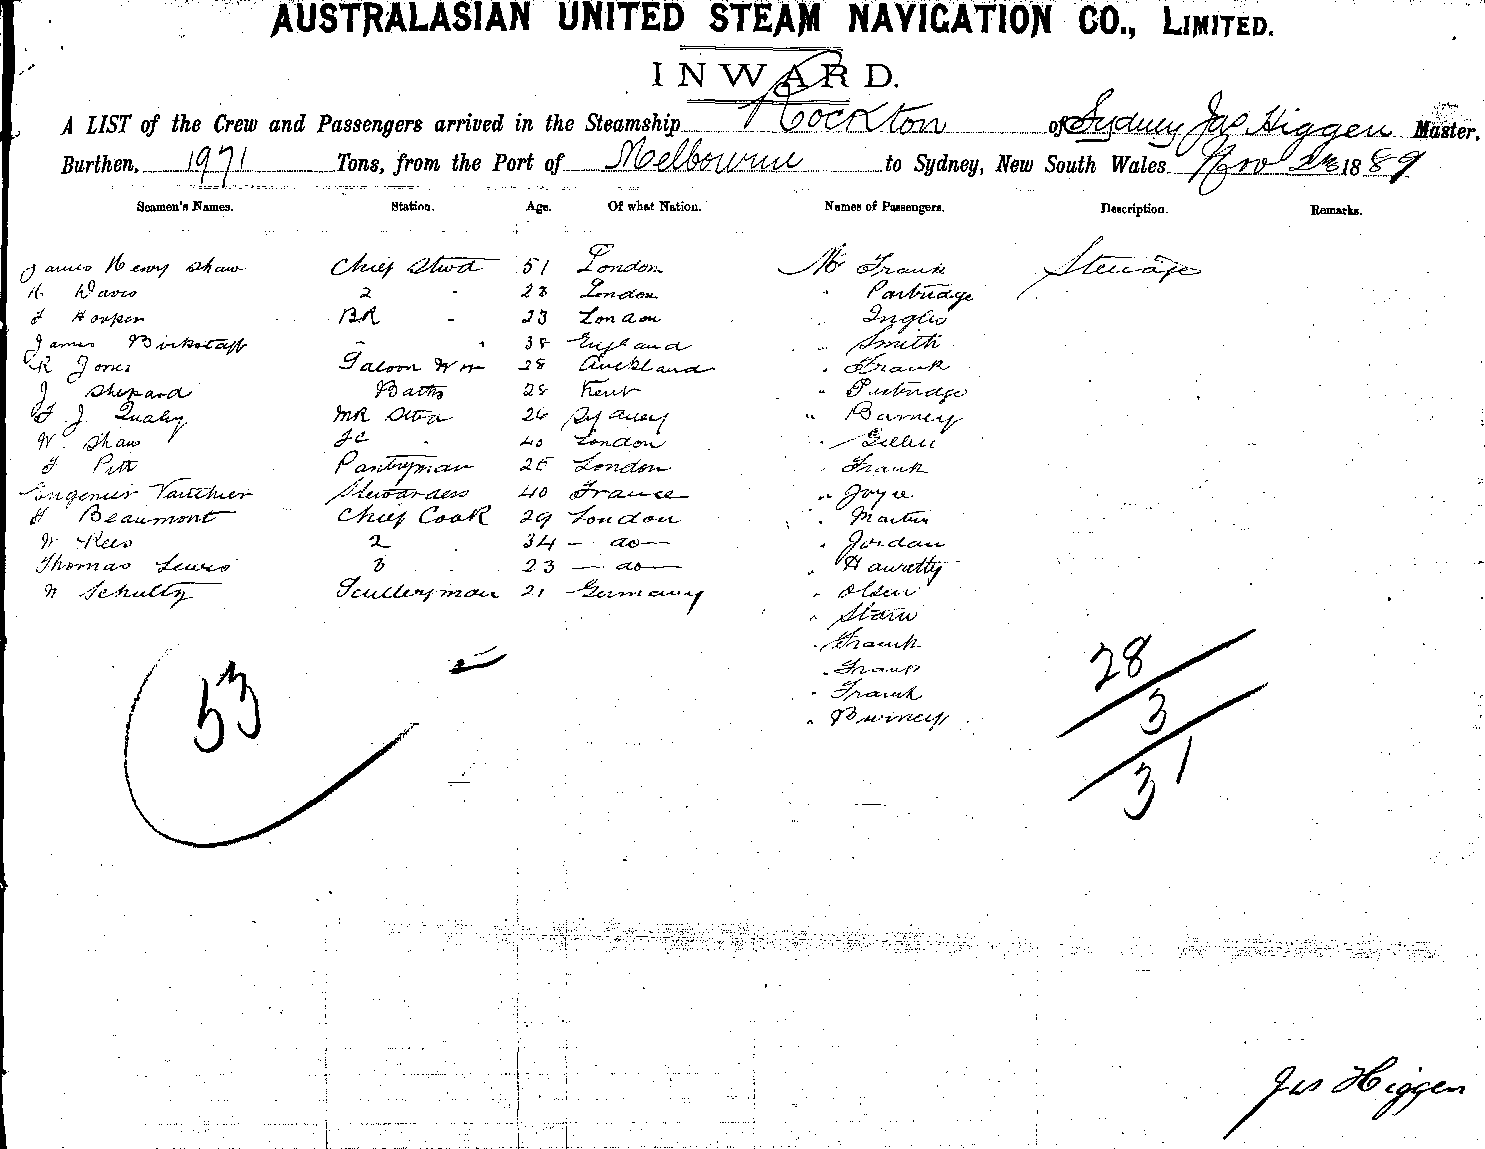 AUSTRALASIAN UNITED STEAM NAVIGATION CO., LIMITED.
INWARD.
A LIST of the Crew and Passengers arrived in the Steamship Rockton of Sydney Jas Higgen Master.
Burthen, 1971 Tons, from the Port of Melbourne to Sydney, New South Wales Nov 1889
Seamen's Names. Station. Age. Of what Nation. Names of Passengers. Description. Remarks.
James Henry Shaw Chief Stwd 51 London Mr Frank Steerage
H Davis 2 " 28 London " Partridge
F Hooper BR " 23 London " Ingles
James Bickstaff " " 38 England " Smith
R Jones Saloon Wr 28 Auckland " Frank
J Shepard Baths 28 Kent " Partridge
J. Quaby MR Stwd 26 Sydney " Barney
W. Shaw FC " 40 London " Gillen
F Pitt Pantryman 25 London " Frank
Eugenier Vauthier Stewardess 40 France " Joyce
H Beaumont Chief Cook 29 London " Martin
W Rees 2 " 34 - do - " Jordan
Thomas Lewis 3 " 23 - do - " Hawretty
W Schultz Sculleryman 21 Germany " Olsen
" Starn
" Frank
" Frank
" Frank
" Burney
53
28
3
31
Jas Higgen